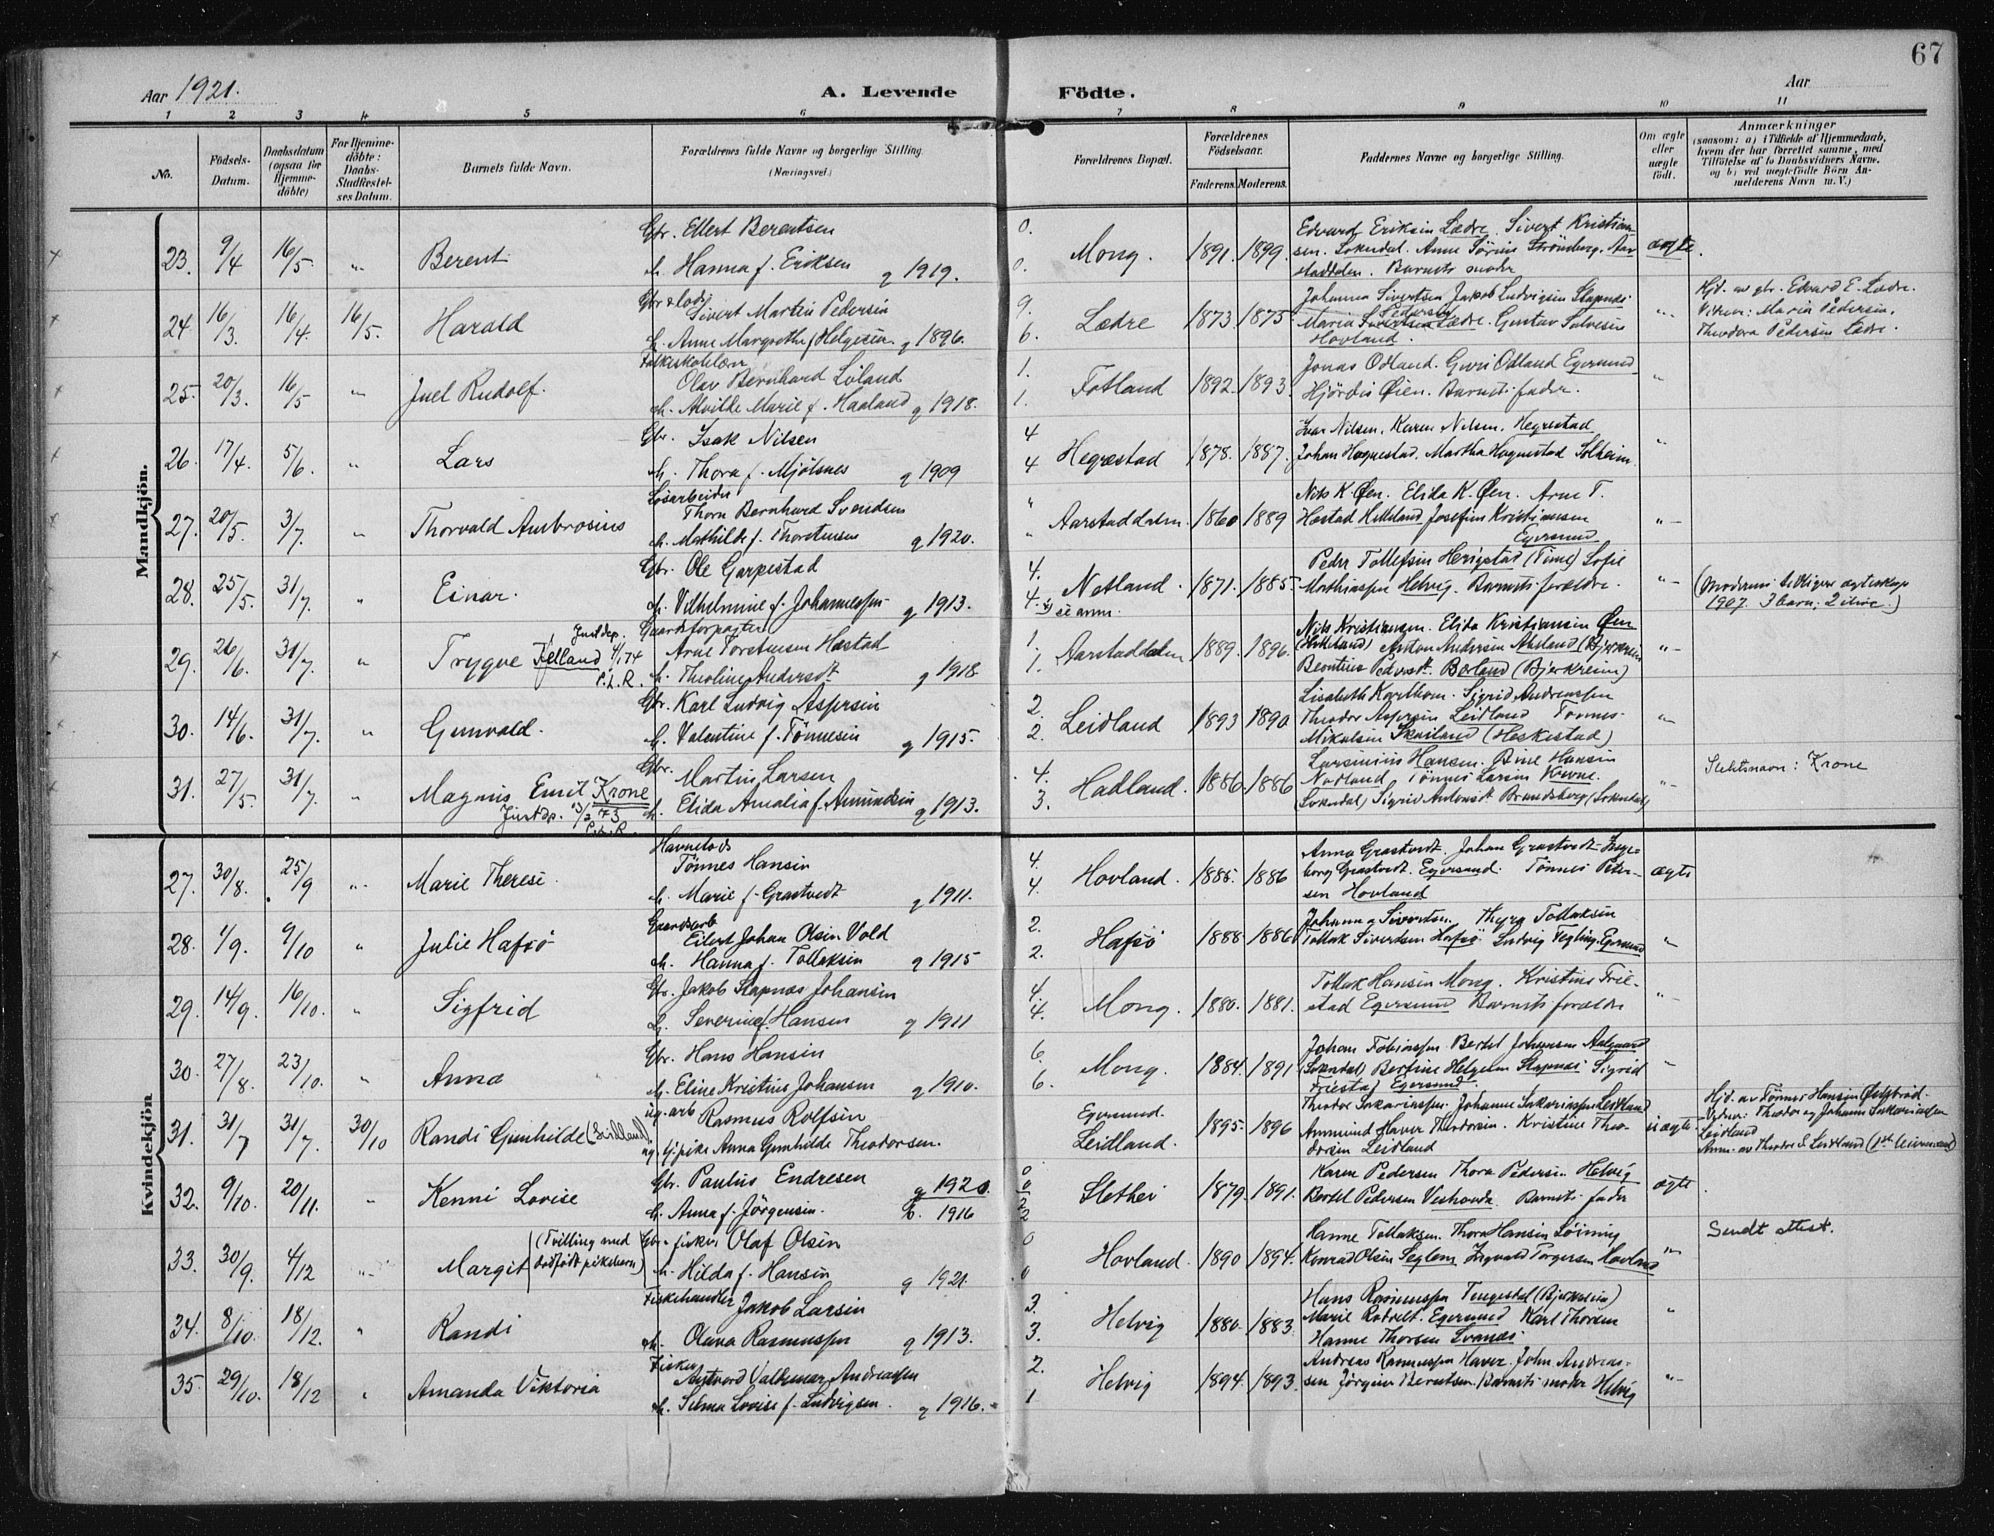 67
Aar 1921.
A. Levende Födte.
Aar
1 2 3 4 5 6 7 8 9 10 11
No.
Födsels-Datum.
Daabsdatum (ogsaa for Hjemmedöbte)
For Hjemmedöbte: Daabs-Stadfæstelses Datum.
Barnets fulde Navn.
Forældrenes fulde Navne og borgerlige Stilling. (Næringsvei.)
Forældrenes Bopæl.
Forældrenes Födselsaar.
Faderens. Moderens.
Faddernes Navne og borgerlige Stilling.
Om ægte eller uægte födt.
Anmærkninger
(saasom: a) i Tilfælde af Hjemmedaab, hvem der har forrettet samme, med Tilföielse af to Daabsvidners Navne, og b) ved uægtefödte Börn Anmelderens Navn m. V.)
Mandkjön.
23. 9/4 16/5 " Berent Gbr. Ellert Berentsen
h. Hanna f. Eriksen g 1919. 0. 0. Mong. 1891. 1899. Edvard Eriksen Lædre. Sivert Kristiansen. Sokndal. Anne Sørine Strömberg. Aarstaddalen. Barnets moder ægte.
24. 16/3. 16/4. 16/5. Harald Gbr & lods Sivert Martin Pedersen
h. Anne Margrethe f. Helgesen g 1896. 9. 6. Lædre 1873. 1875. Johanna Sivertsen Jakob Ludvigsen Stapnes Maria Pedersen Lædre. Gustav Salvesen Hovland. " Hjd. av gbr. Edvard E. Lædre. Vitner: Maria Pedersen, Theodora Pedersen Lædre.
25. 20/3. 16/5 " Juel Rudolf. Folkeskolelærer Olav Bernhard Löland
h. Alvilde Marie f. Haaland g 1918. 1. 1. Fotland 1892. 1893. Jonas Odland. Guri Odland Egersund Hjördis Øien. Barnets fader. "
26. 17/4. 5/6. " Lars Gbr. Isak Nilsen
h. Thora f. Mjölsnes g 1909 4 4 Hegrestad 1878. 1887. Ivar Nilsen. Karen Nilsen. Hegrestad Johan Hegrestad. Martha Hegrestad Solheim. "
27. 20/5. 3/7. " Thorvald Ambrosius Løsarbeider Thorn Bernhard Svendsen
h. Mathilde f. Thorstensen g 1920. " " Aarstaddalen. 1860 1889 Nils K. Øen. Elida K. Øen. Arne T. Hæstad Hetland Josefine Kristiansen Egersund. "
28. 25/5. 31/7. " Einar. Gbr. Ole Garpestad
h. Vilhelmine f. Johannessen g 1913. 4. 4. Netland. se anm. 1871. 1885. Peder Tollefsen Herigstad (Time) Sofie Mathiassen Helvig. Barnets forældre. " (Moderens tidligere ægteskap 1907. 3 barn: 2 ilive.)
29. 26/6. 31/7. " Trygve Fjelland Just.dep. 4/1 74 P.L.R. Gaardsforpagter Arne Torstensen Hæstad
h. Theoline Andersdt g 1918 1. 1. Aarstaddalen 1889. 1896. Nils Kristiansen. Elida Kristiansen Øen (Hetland) Anton Andersen (Bjerkreim) Berntine Pedersdt. Borland (Bjerkreim) "
30. 14/6. 31/7. " Gunvald. Gbr. Karl Ludvig Aspersen
h. Valentine f. Tönnesen g 1915. 2. 2. Leidland 1893 1890 Lisabeth Karlsen. Sigrid Andreassen Theodor Aspersen Leidland Tönnes Mikalsen Skailand (Heskestad) "
31. 27/5. 31/7. " Magnus Emil Krone Just.dp. 13/2 73 P.L.R. Gbr. Martin Larsen
h. Elida Amalia f. Amundsen g 1913. 4. 3. Hadland. 1886 1886 Larsinius Hansen. Hansen Nodland Tönnes Larsen Sokndal) Sigrid Brandsberg (Sokndal) " Slektsnavn: Krone
Kvindekjön
27. 30/8. 25/9 " Marie Therese. Havnelods Tönnes Hansen
h. Marie f. Grastvedt g 1911. 4. 4. Hovland. 1885. 1886 Anna Grastvedt. Johan Grastvedt. Ingeborg Grastvedt. Egersund. Tönnes Petersen Hovland ægte
28. 4/9. 9/10 " Julie Hafsö Gaardsarb Eilert Johan Olsen Vold
h. Hanna f. Tollaksen g 1915 2. 2. Hafsö 1888 1886 Johanna Sivertsen. Thyra Tollaksen Tollak Sivertsen Hafsö Ludvig Tegling. Egersund "
29. 14/9. 16/10. " Sigfrid Gbr. Jakob Stapnæs Johansen
h. Severine f. Hansen g 1911 4. 4. Mong. 1880. 1881. Tollak Hansen Mong. Kristine Friestad Egersund Barnets forældre "
30. 27/8. 23/10. " Anna Gbr. Hans Hansen
h. Eline Kristine Johansen g 1910. 6. 6. Mong. 1884. 1891 Johan Tobiassen. Bertel Johansen Aalgaard (Sokndal) Bertine Helgesen Stapnes Sigrid Friestad Egersund. "
31. 31/7 31/7. 30/10 Randi Gunhilde (Leidland) ug. arb Rasmus Rolfsen
ug. tj.pike Anna Gunhilde Theodorsen. Egersund. Leidland. 1895. 1896 Theodor Sakariassen. Johanne Sakariassen Leidland Ammund Haver Theodorsen. Kristine Theodorsen Leidland uægte. Hjd. av Tönnes Hansen Østebröd. Vidner: Theodor og Johanne Sakariassen Leidland Anm. av Theodor S. Leidland
32. 9/10. 20/11. " Kenni Lovise Gbr. Paulus Endresen g 1920
h. Anna f. Jörgensen. 1916 0 0 2 2 Slethei 1879. 1891. Karen Pedersen Thora Pedersen Helvig Bertel Pedersen Veshovda. Barnets fader ægte.
33. 30/9. 4/12 " Margit (Tvilling med dødfødt pikebarn) Gbr. fisker Olaf Olsen
h. Hilda f. Hansen g 1921. 0 0 Hovland. 1890 1894. Hanne Tollaksen. Thora Hansen Konrad Olsen Seglem Ingvald Torgersen Hovland " Sendt attest.
34. 8/10. 18/12. " Randi Fiskehandler Jakob Larsen
h. Olava Rasmussen g 1913. 3. 3. Helvig 1880. 1883. Hans Rasmussen Tengesdal (Bjerkreim) Marie Rodvelt. Egersund Karl Thorsen Hanne Thorsen Svanes "
35. 29/10. 18/12 " Amanda Viktoria Fisker Valdemar Andreassen
h. Selma Lovise f. Ludvigsen. g 1916. 2. 1 Helvig 1894. 1893. Andreas Rasmussen Haver. John Andreassen Jörgine Berntsen. Barnets moder Helvig "